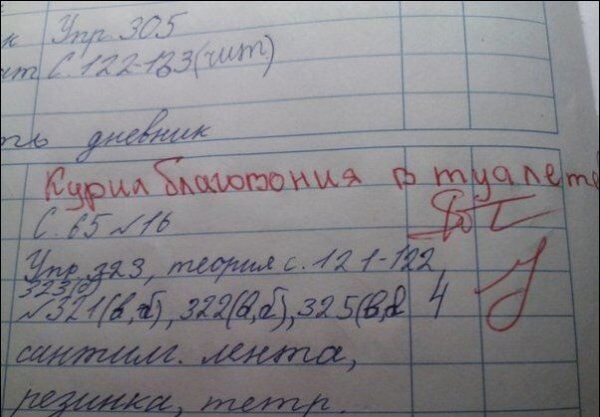 к Упр 305
ит С. 122-123 (чит)
ть дневник
Курил благовония в туалете
С. 65 №16
Упр. 323, теория с. 121-122,
323(б)
№321(в,б), 322(а,б), 325(в,б 4
сантим. лента,
резинка, тетр.